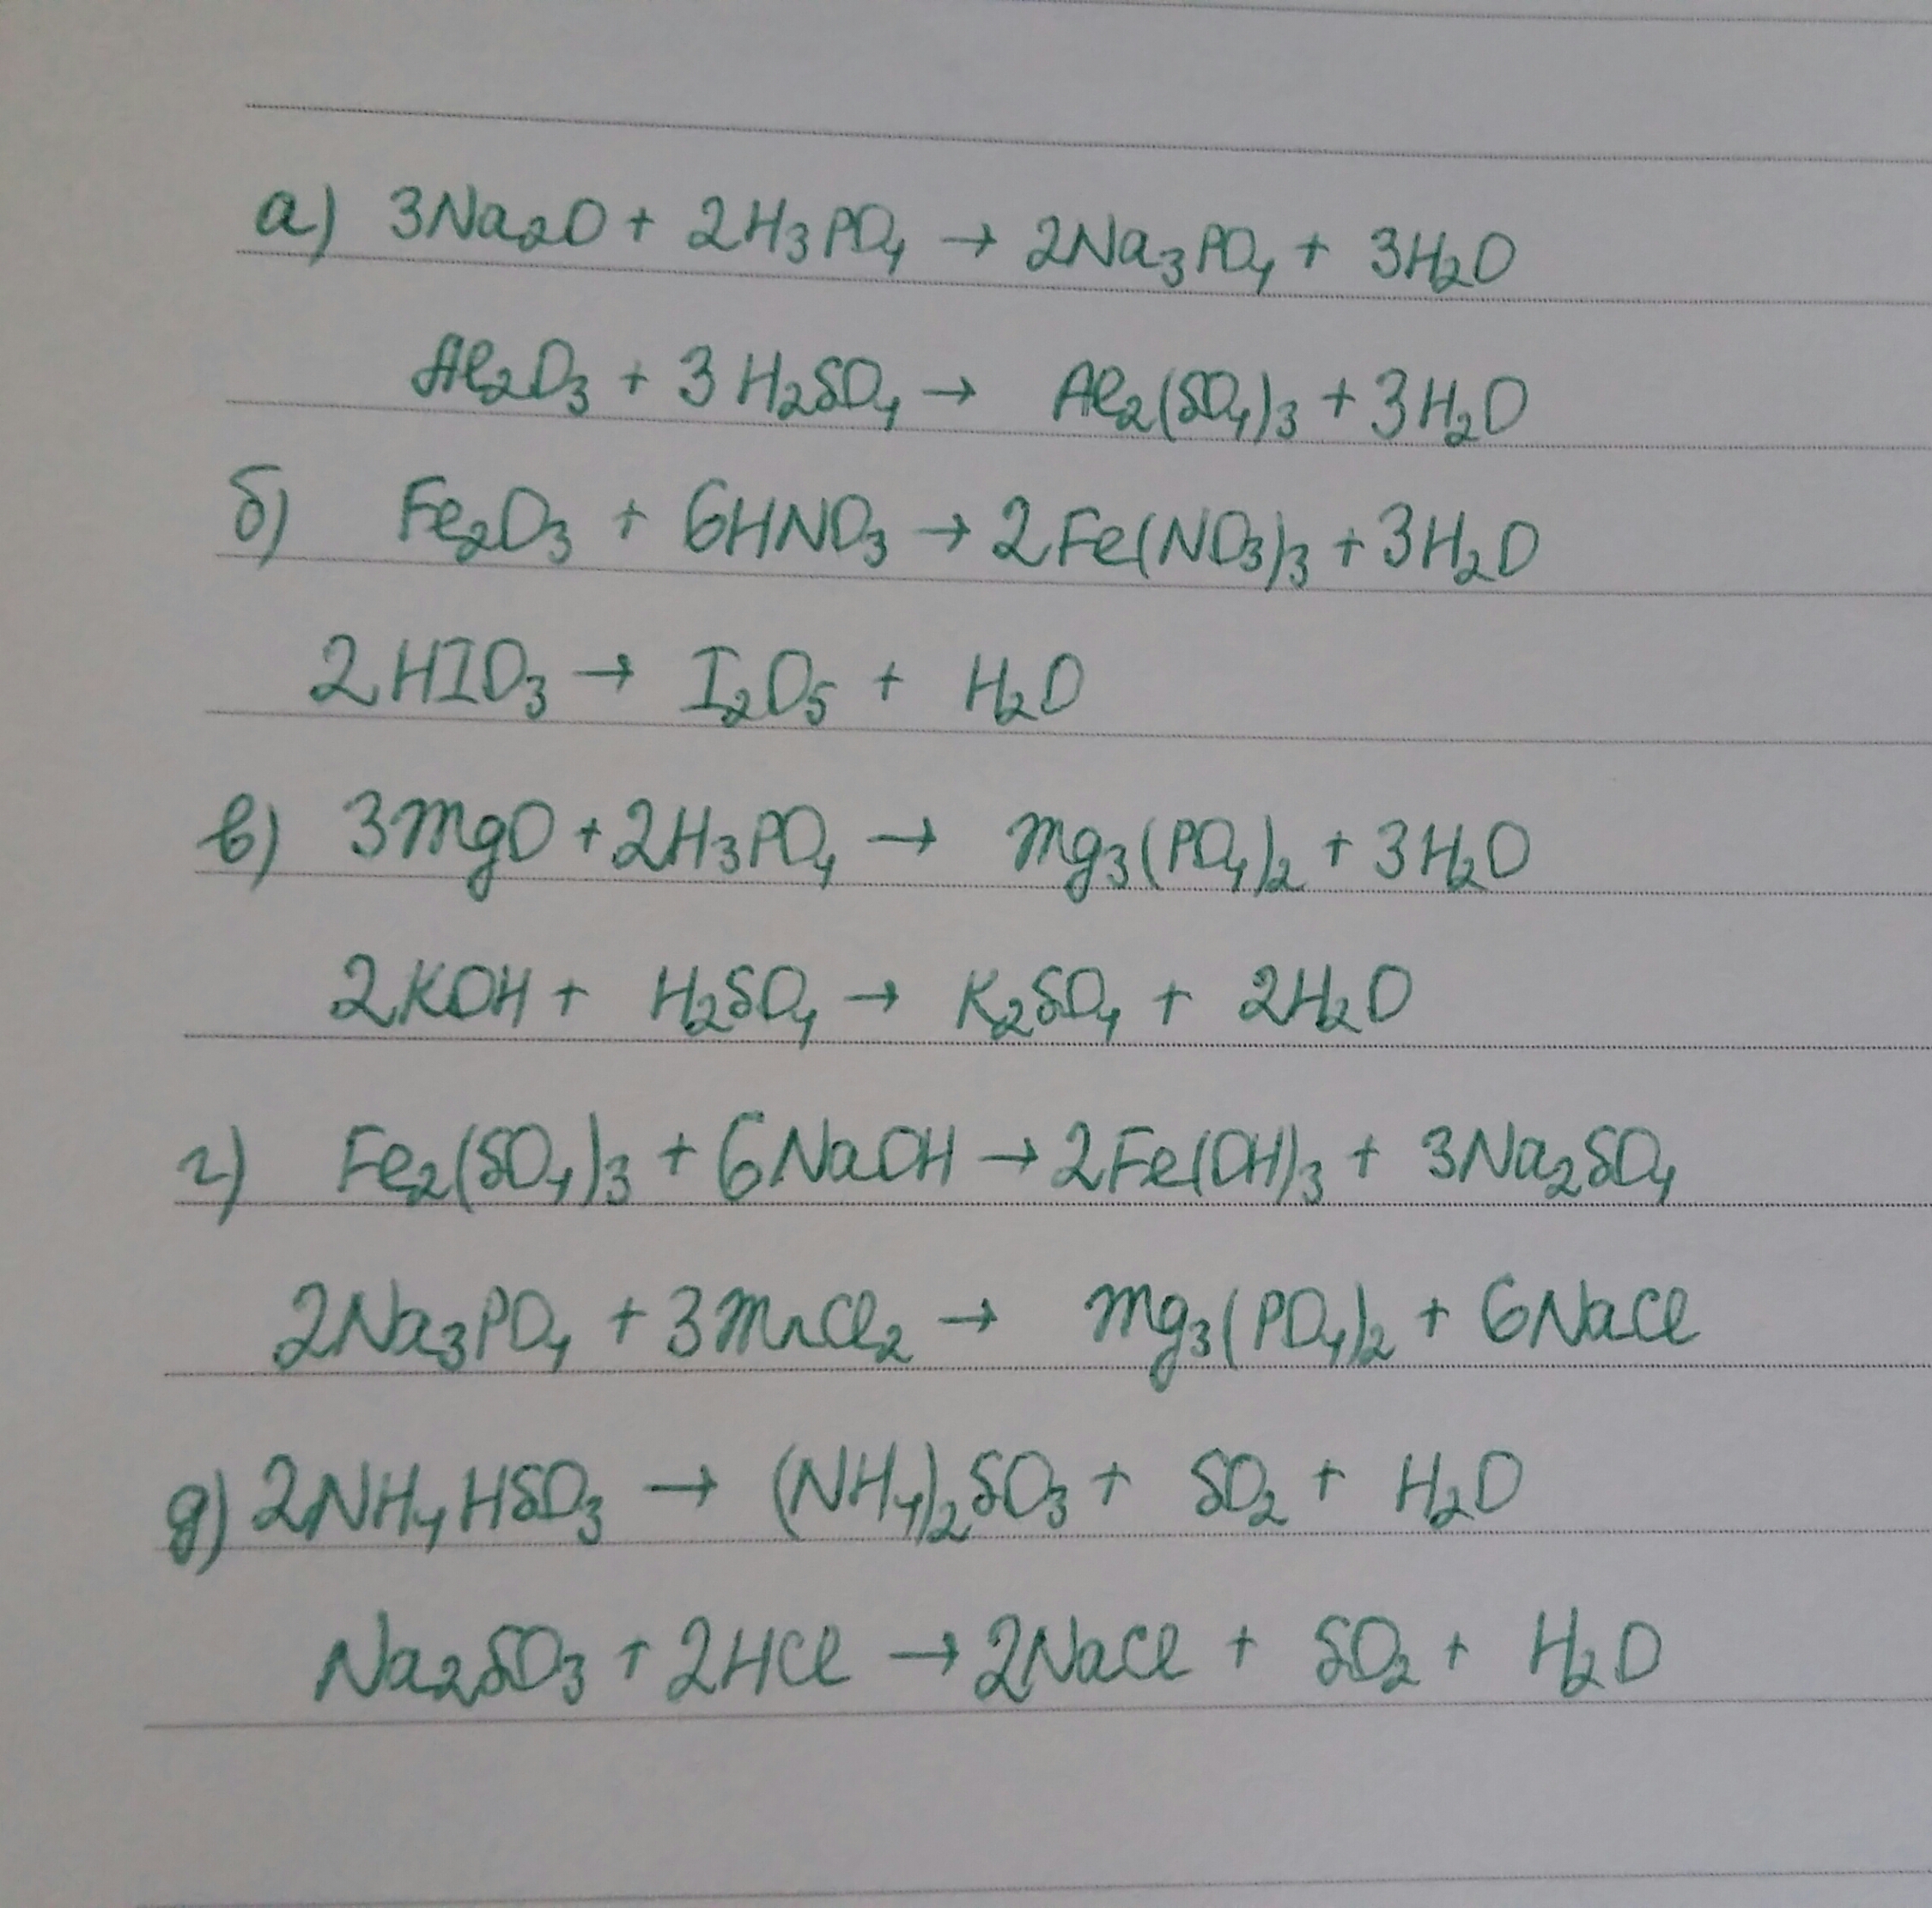 а) 3Na₂O + 2H₃PO₄ → 2Na₃PO₄ + 3H₂O
Al₂O₃ + 3H₂SO₄ → Al₂(SO₄)₃ + 3H₂O
б) Fe₂O₃ + 6HNO₃ → 2Fe(NO₃)₃ + 3H₂O
2HIO₃ → I₂O₅ + H₂O
в) 3MgO + 2H₃PO₄ → Mg₃(PO₄)₂ + 3H₂O
2KOH + H₂SO₄ → K₂SO₄ + 2H₂O
г) Fe₂(SO₄)₃ + 6NaOH → 2Fe(OH)₃ + 3Na₂SO₄
2Na₃PO₄ + 3MnCl₂ → Mg₃(PO₄)₂ + 6NaCl
д) 2NH₄HSO₃ → (NH₄)₂SO₃ + SO₂ + H₂O
Na₂SO₃ + 2HCl → 2NaCl + SO₂ + H₂O